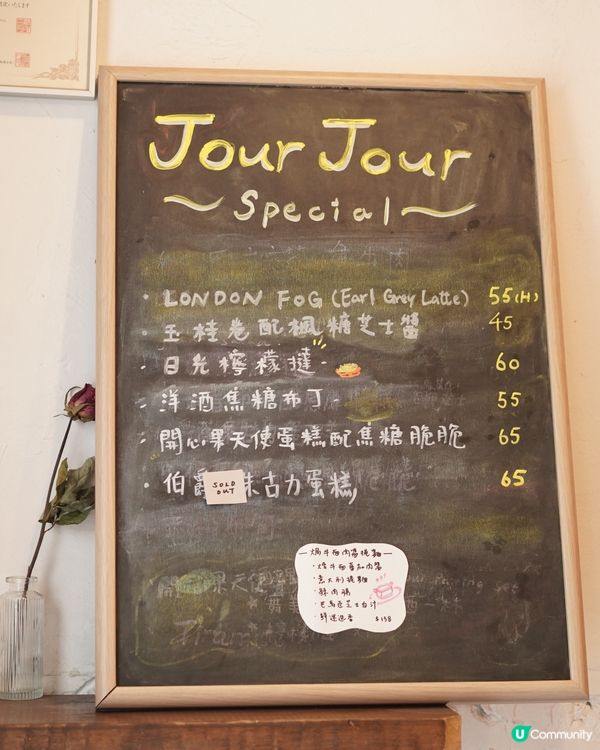 Jour Jour
~Special~
· LONDON FOG (Earl Grey Latte) 55(H)
· 玉桂卷配楓糖芝士醬 45
· 日光檸檬撻 60
· 洋酒焦糖布丁 55
· 開心果天使蛋糕配焦糖脆脆 65
· 伯爵朱古力蛋糕 65
SOLD OUT
· 意大利
· 巴馬臣芝士白汁
$138
U Community